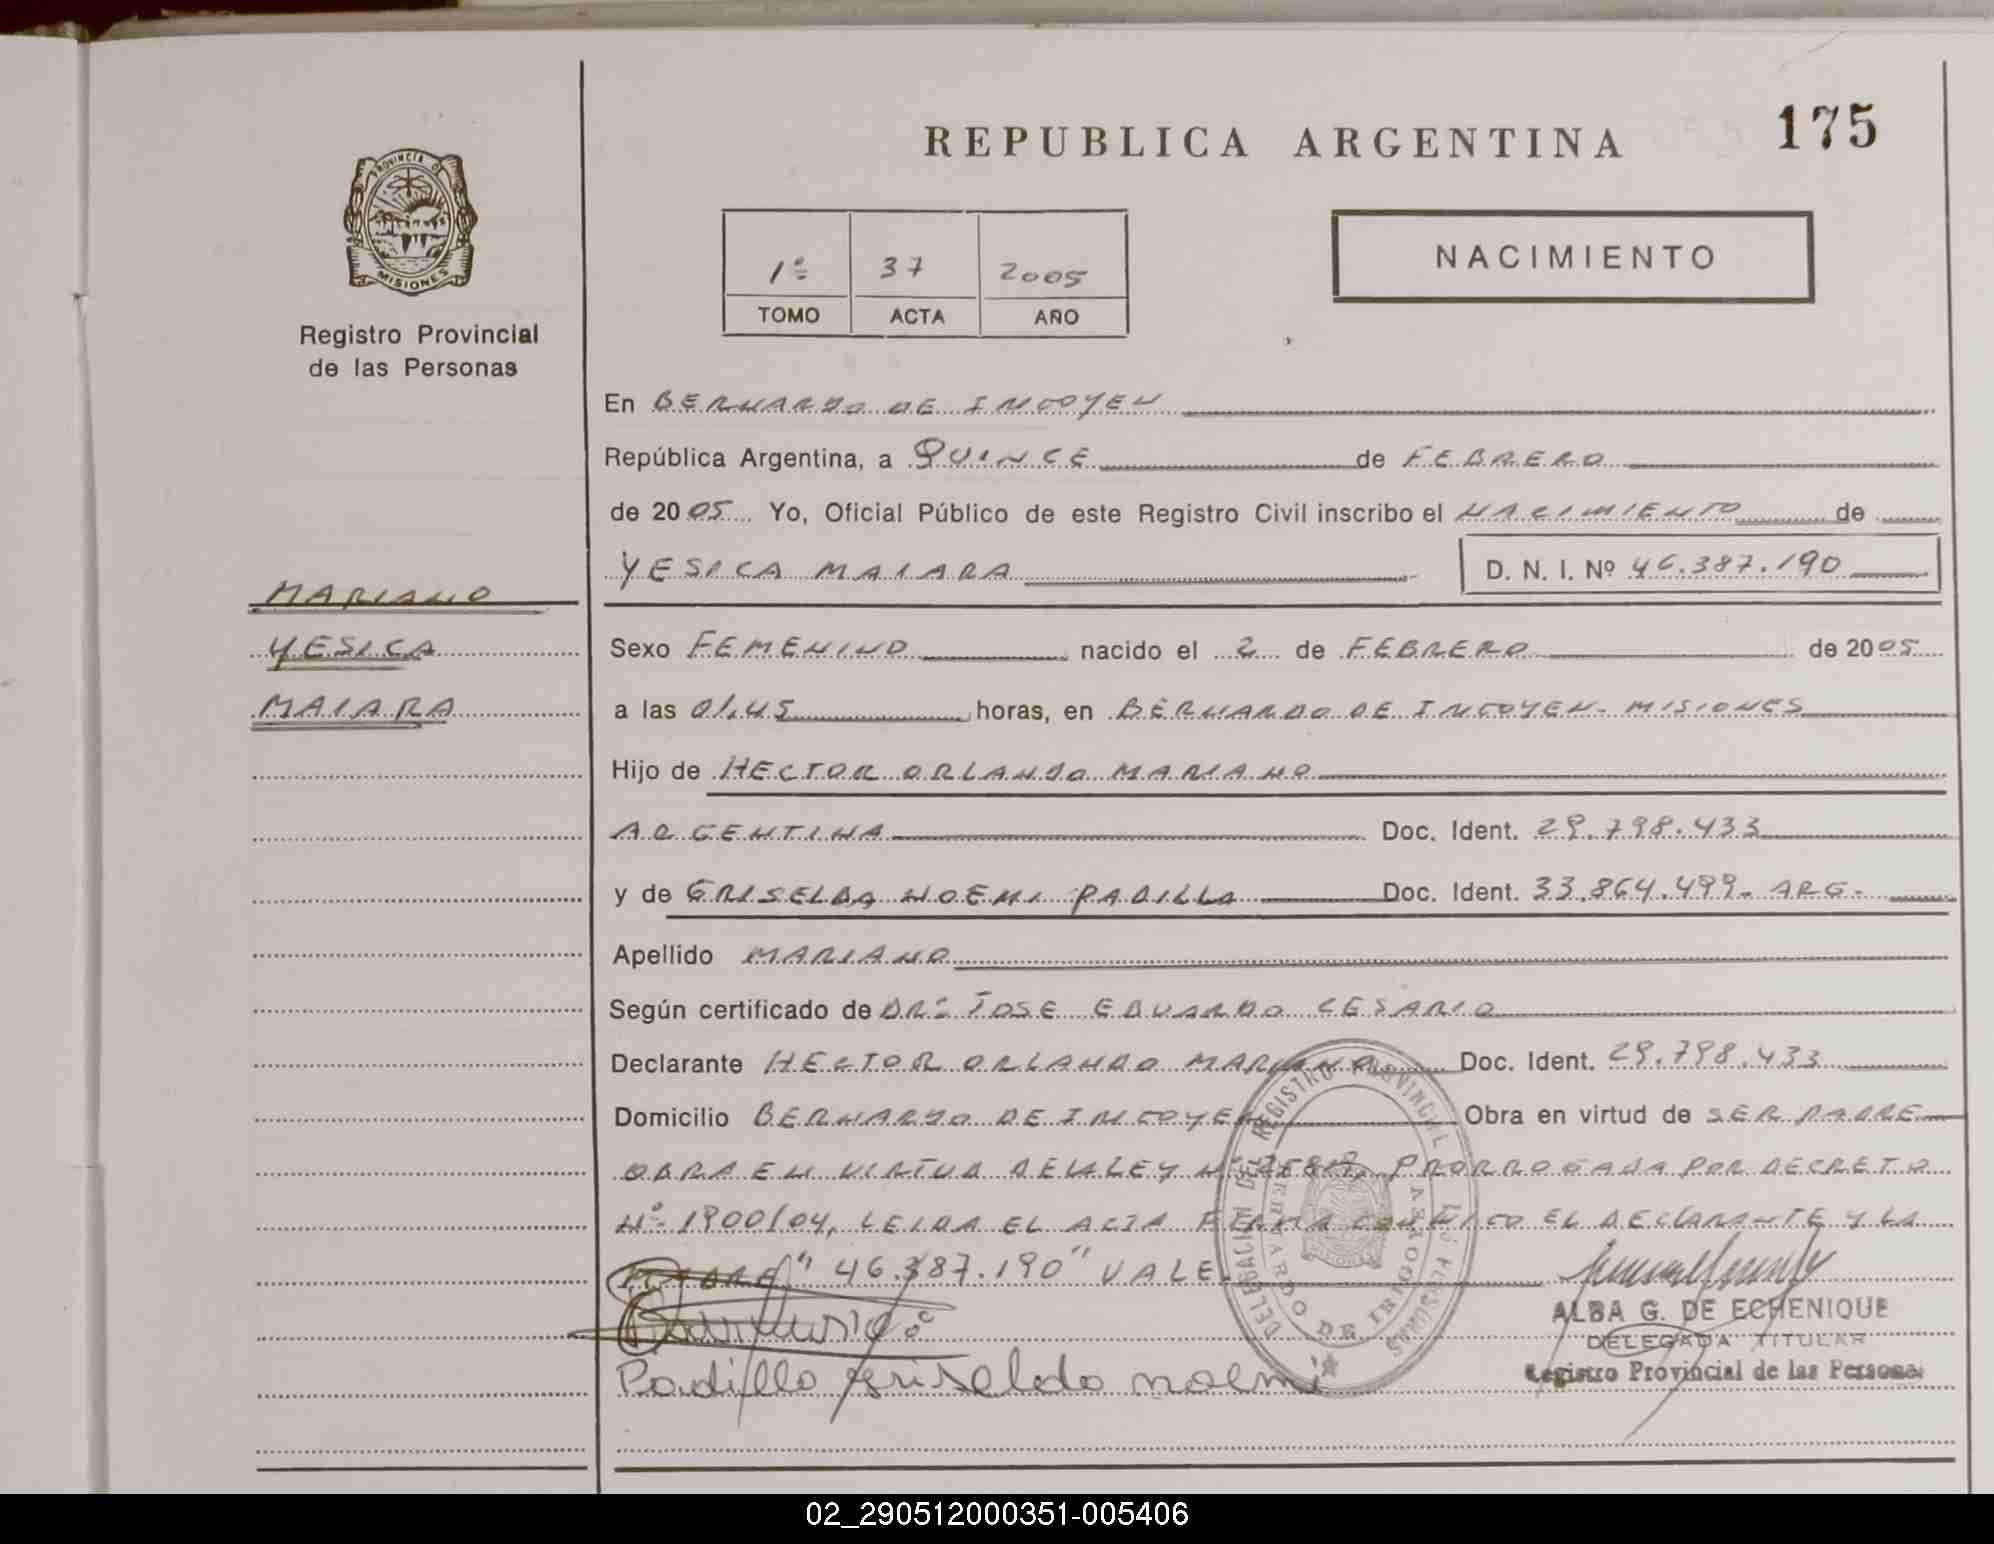 REPUBLICA ARGENTINA
175
PROVINCIA D
MISIONES
Registro Provincial
de las Personas
1º 37 2005
TOMO ACTA AÑO
NACIMIENTO
En BERNARDO DE IRIGOYEN
República Argentina, a QUINCE de FEBRERO
de 2005 Yo, Oficial Público de este Registro Civil inscribo el NACIMIENTO de
YESICA MAIARA D. N. I. Nº 46.387.190
MARIANO
YESICA
MAIARA
Sexo FEMENINO nacido el 2 de FEBRERO de 2005
a las 01.45 horas, en BERNARDO DE IRIGOYEN- MISIONES
Hijo de HECTOR ORLANDO MARIANO
ARGENTINA Doc. Ident. 29.798.433
y de GRISELDA NOEMI PADILLA Doc. Ident. 33.864.499- ARG-
Apellido MARIANO
Según certificado de DR: JOSE EDUARDO CESARIO
Declarante HECTOR ORLANDO MARIANO Doc. Ident. 29.798.433
Domicilio BERNARDO DE IRIGOYEN Obra en virtud de SER PADRE
OBRA EN VIRTUD DE LA LEY Nº PRORROGADA POR DECRETO
Nº 1900/04, LEIDA EL ACTA FIRMA CONMIGO EL DECLARANTE Y LA
MADRE "46.387.190" VALE.
Padilla Griselda noemi
DELEGACION DEL REGISTRO PROVINCIAL DE LAS PERSONAS
BERNARDO DE IRIGOYEN
ALBA G. DE ECHENIQUE
DELEGADA TITULAR
Registro Provincial de las Personas
02_290512000351-005406